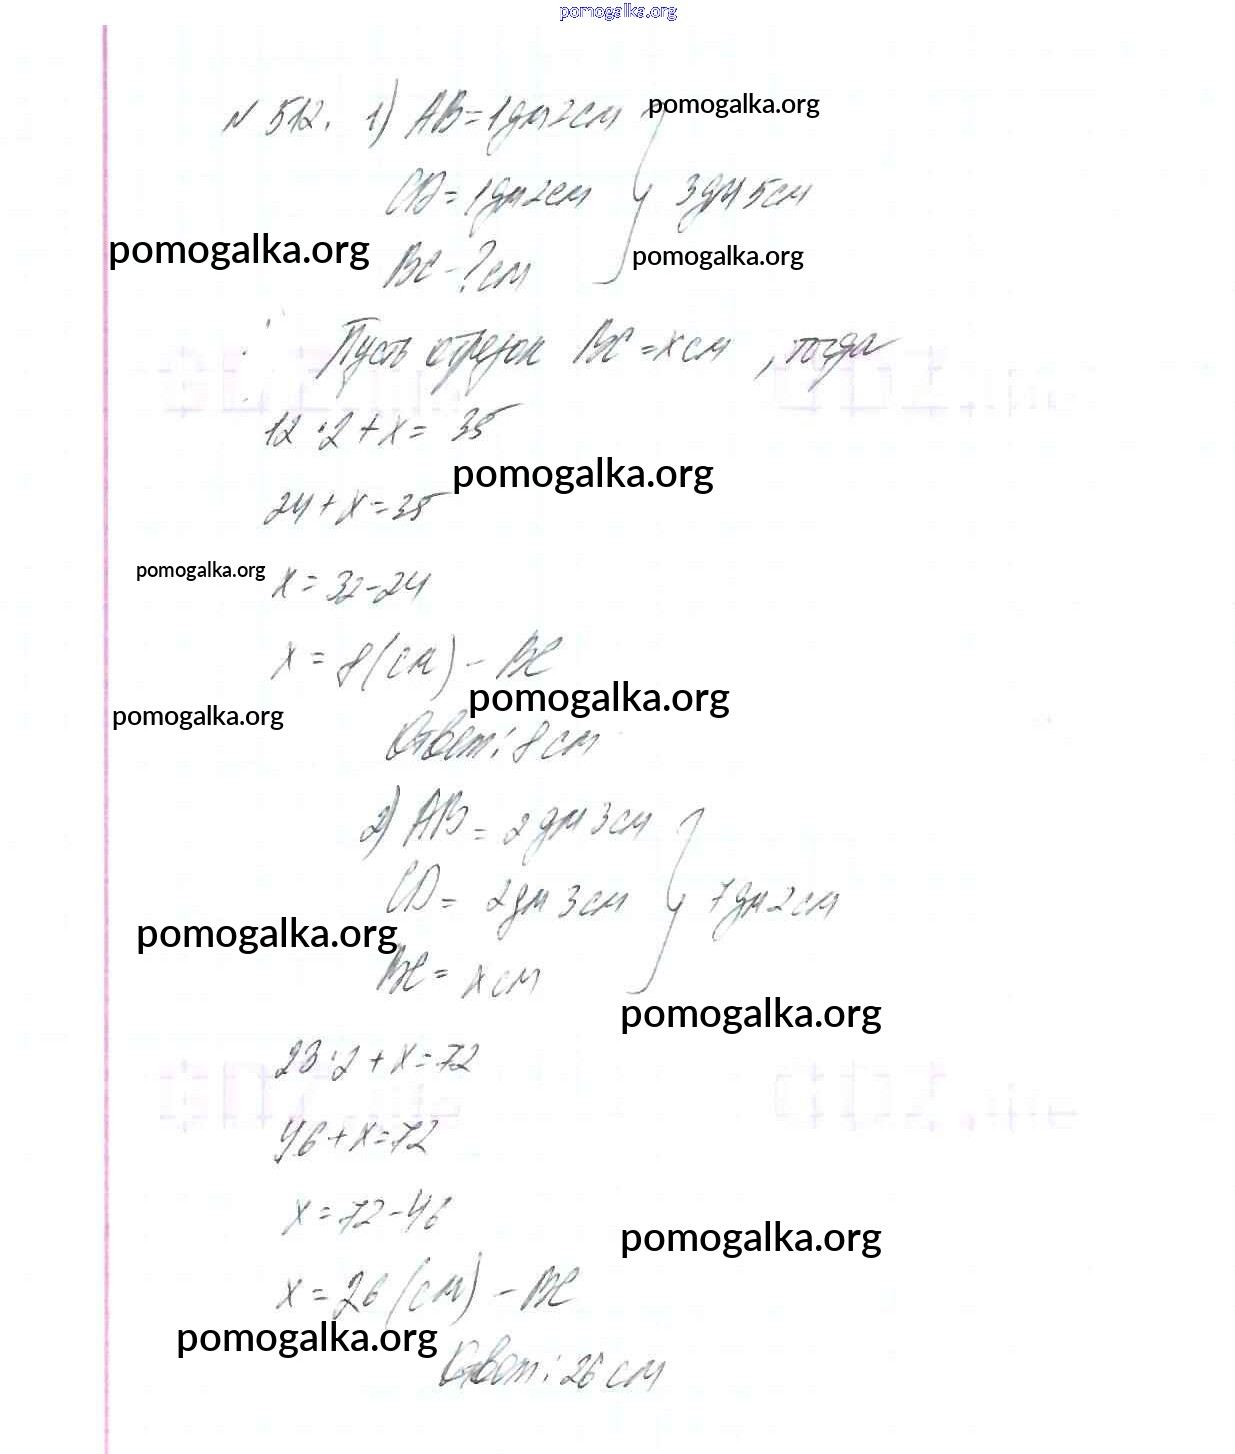 pomogalka.org
N 512. 1) AB = 1дм 2см pomogalka.org
CD = 1дм 2см } 3дм 5см
pomogalka.org BC - ? см pomogalka.org
Пусть отрезок BC = x см, тогда
12 · 2 + x = 35
pomogalka.org
24 + x = 35
pomogalka.org x = 32 - 24
x = 8 (см) - BC
pomogalka.org
pomogalka.org
Ответ: 8 см
2) AB = 2 дм 3 см
CD = 2дм 3 см } 7дм 2 см
pomogalka.org
BC = x см
pomogalka.org
23 · 2 + x = 72
46 + x = 72
x = 72 - 46
pomogalka.org
x = 26 (см) - BC
pomogalka.org
Ответ: 26 см